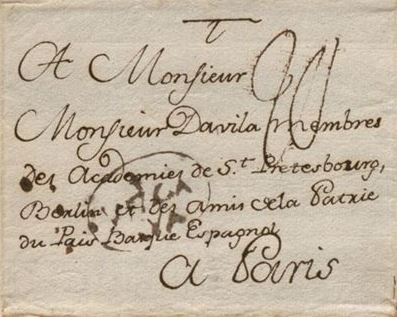 A Monsieur
Monsieur Davila membres
des Academies de S.t Pretesbourg,
Berlin et des Amis de la Patrie
du Pais Basque Espagnol
a Paris